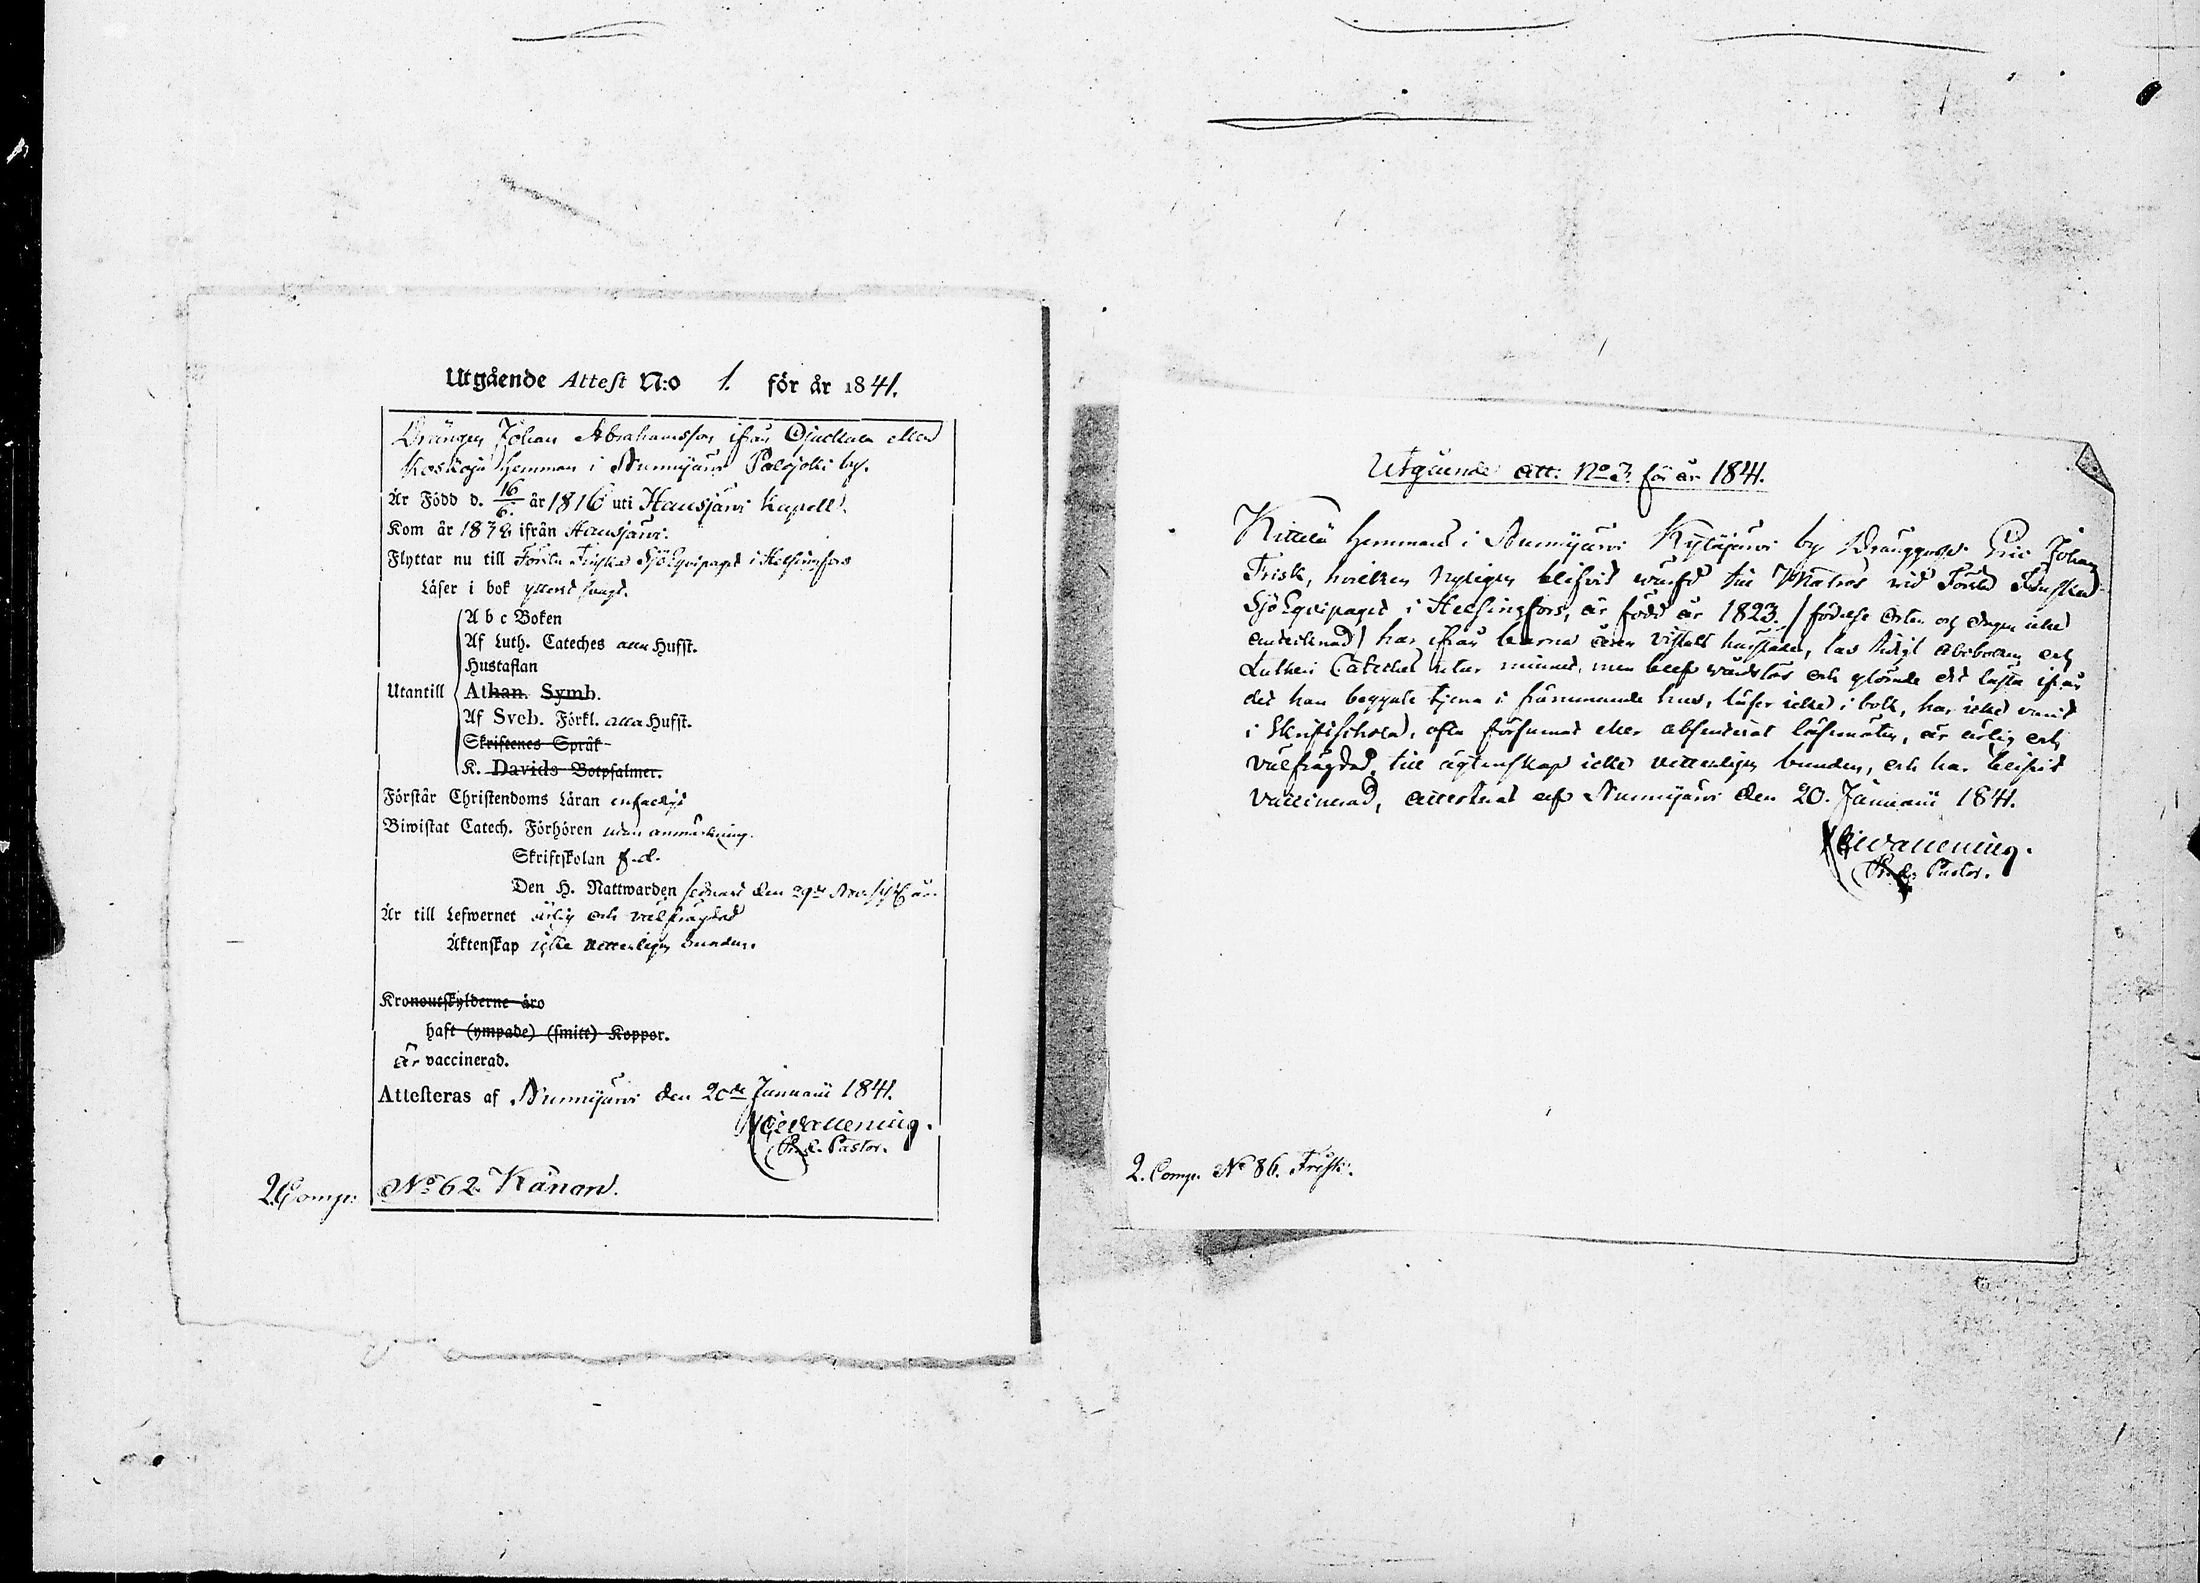 Utgående Attest N:o 1. för år 1841.
Drängen Johan Abrahamsson ifrån Ojackala eller
Koskoja hemman i Nummijärvi Palojoki by.
Är Född d. 16/6. år 1816 uti Hausjärvi Kapell.
Kom år 1838 ifrån Hausjärvi.
Flyttar nu till Första Finska SjöEqvipaget i Helsingfors
Läser i bok ytterst svagt.
A b c Boken
Af Luth. Cateches alla Hufst.
Hustaflan
Utantill Athan. Symb.
Af Sveb. Förkl. alla Hufst.
Skriftenes Språk
K. Davids Botpsalmer.
Förstår Christendoms Läran enfaldigt
Biwistat Catech. Förhören utan anmärkning.
Skriftskolan s.d.
Den H. Nattwarden sednast den 29de Nov. sistl. år.
Är till Lefwernet ärlig och välfrägdad
Äktenskap icke vetterligen bunden.
Kronoutskylderne äro
haft (ympade) (smitt) Koppor.
är vaccinerad.
Attesteras af Nummijärvi den 20de Januarii 1841.
Pastor.
2. Comp: No 62 Känon.
Utgående att: No 3. för år 1841.
Kittilä hemmans i Nummijärvi Kytäjärvi by Dränggosse Eric Johan
Frisk, hvilken nyligen blifvit värfd till Matros vid Första Finska
SjöEqvipaget i Helsingfors, är född år 1823. / födelse orten och dagen icke
antecknad / har ifrån barna åren vistats härstädes, las tidigt abcboken och
Lutheri Cateches utur minnet, men blef vårdslös och glömde det lästa ifrån
det han begynte tjena i främmande hus, läser icke i bok, har icke varit
i Skriftschola, ofta försummat eller absenterat läsemöten, är ärlig och
välfrägdad, till ägtenskap icke vetterligen bunden, och har blifvit
vaccinerad, attesterat af Nummijärvi den 20. Januarii 1841.
Pastor.
2. Comp. No 86. Frisk.